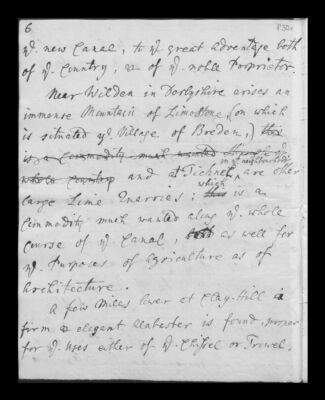 6
ye. new Canal, to ye. great advantage both
of ye. Country, & of ye. noble Proprietor.
Near Wilden in Derbyshire arises an
immense Mountain of Limestone, (on which
is situated ye. Village of Breden,) this
is a Commodity much wanted through ye.
in ye. neighbourhood
whole Country and at Ticknel, are other
which
large Lime Quarries; this is a
Commodity much wanted along ye. whole
Course of ye. Canal, as well for
ye. Purposes of Agriculture as of
Architecture.
A few Miles lower at Clay-Hill a
firm & elegant Alabaster is found, proper
for ye. Uses either of ye. Chissel or Trowel.